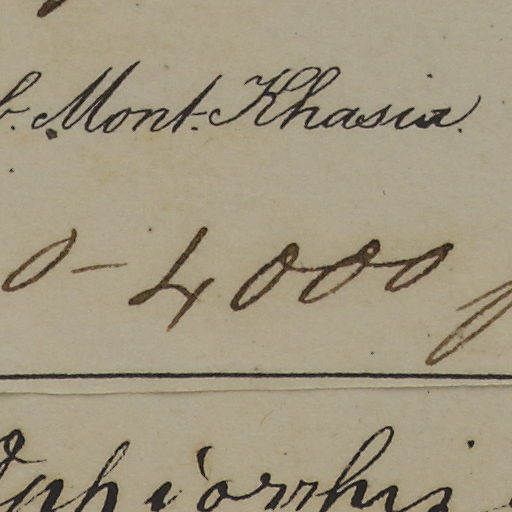 b. Mont. Khasia.
0-4000
phiorrhiz